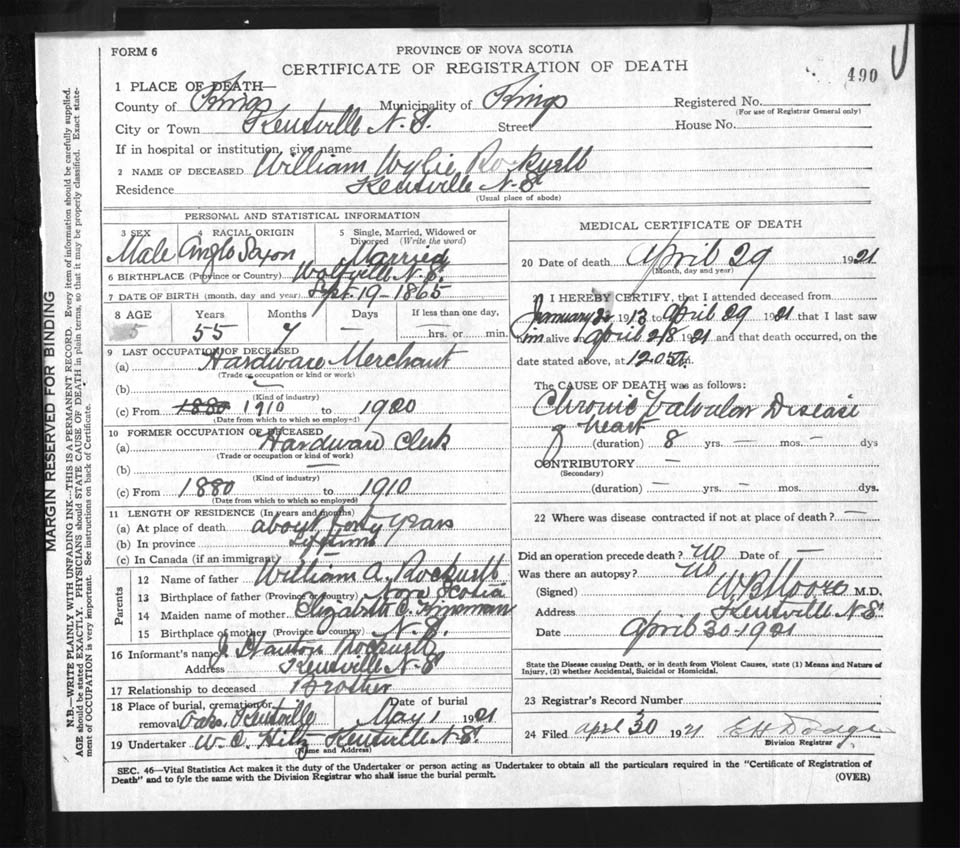 FORM 6
PROVINCE OF NOVA SCOTIA
CERTIFICATE OF REGISTRATION OF DEATH
490
1 PLACE OF DEATH—
County of Kings Municipality of Kings Registered No.
(For use of Registrar General only)
City or Town Kentville N.S. Street House No.
If in hospital or institution, give name
2 NAME OF DECEASED William Wylie Rockwell
Residence Kentville N.S.
(Usual place of abode)
PERSONAL AND STATISTICAL INFORMATION
3 SEX 4 RACIAL ORIGIN 5 Single, Married, Widowed or Divorced (Write the word)
Male Anglo Saxon Married
6 BIRTHPLACE (Province or Country) Wolfville N.S.
7 DATE OF BIRTH (month, day and year) Sept. 19-1865
8 AGE Years Months Days If less than one day,
55 7 — hrs. or min.
9 LAST OCCUPATION OF DECEASED
(a) Hardware Merchant
(Trade or occupation or kind or work)
(b) —
(Kind of industry)
(c) From 1880 1910 to 1920
(Date from which to which so employed)
10 FORMER OCCUPATION OF DECEASED
(a) Hardware Clerk
(Trade or occupation or kind of work)
(b) —
(Kind of industry)
(c) From 1880 to 1910
(Date from which to which so employed)
11 LENGTH OF RESIDENCE (In years and months)
(a) At place of death about forty years
(b) In province Lifetime
(c) In Canada (if an immigrant)
Parents
12 Name of father William A. Rockwell
13 Birthplace of father (Province or country) Nova Scotia
14 Maiden name of mother Elizabeth C. Kinsman
15 Birthplace of mother (Province or country) N.S.
16 Informant's name J. Stanton Rockwell
Address Kentville N-S
17 Relationship to deceased Brother
18 Place of burial, cremation or removal Oaks, Kentville Date of burial May 1 1921
19 Undertaker W. C. Hiltz Kentville N.S.
(Name and Address)
MEDICAL CERTIFICATE OF DEATH
20 Date of death April 29 1921
(Month, day and year)
21 I HEREBY CERTIFY, that I attended deceased from
January 1913 to April 29 1921 that I last saw
him alive on April 28 1921 and that death occurred, on the
date stated above, at 12.05 m.
The CAUSE OF DEATH was as follows:
Chronic Valvular Disease
of heart
(duration) 8 yrs. — mos. — dys
CONTRIBUTORY —
(Secondary)
(duration) — yrs. — mos. dys.
22 Where was disease contracted if not at place of death? —
Did an operation precede death? No Date of —
Was there an autopsy? No
(Signed) W B Moore M.D.
Address Kentville N.S.
Date April 30-1921
State the Disease causing Death, or in death from Violent Causes, state (1) Means and Nature of
Injury, (2) whether Accidental, Suicidal or Homicidal.
23 Registrar's Record Number
24 Filed April 30 1921 E H Dodge
Division Registrar
SEC. 46—Vital Statistics Act makes it the duty of the Undertaker or person acting as Undertaker to obtain all the particulars required in the "Certificate of Registration of
Death" and to fyle the same with the Division Registrar who shall issue the burial permit.
(OVER)
MARGIN RESERVED FOR BINDING
N.B.—WRITE PLAINLY WITH UNFADING INK—THIS IS A PERMANENT RECORD. Every item of information should be carefully supplied.
AGE should be stated EXACTLY. PHYSICIANS should STATE CAUSE OF DEATH in plain terms, so that it may be properly classified. Exact state-
ment of OCCUPATION is very important. See instructions on back of Certificate.